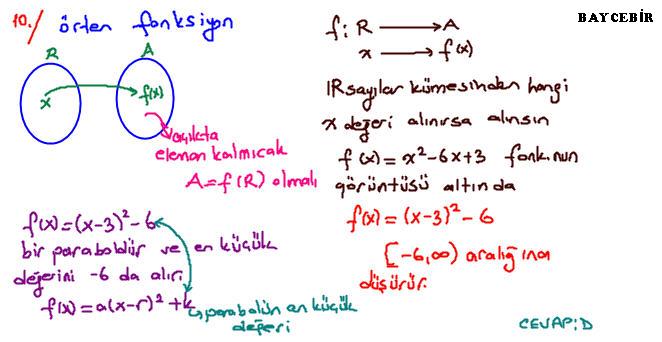 BAYCEBİR
10./ örten fonksiyon
R A
x f(x)
açıkta
eleman kalmıcak
A=f(R) olmalı
f: R → A
x → f(x)
IR sayılar kümesinden hangi
x değeri alınırsa alınsın
f(x)=x²-6x+3 fonk.nun
görüntüsü altında
f(x)=(x-3)²-6
[-6,∞) aralığına
düşürür.
f(x)=(x-3)²-6
bir paraboldür ve en küçük
değerini -6 da alır.
f(x)=a(x-r)²+k
parabolün en küçük
değeri
CEVAP:D